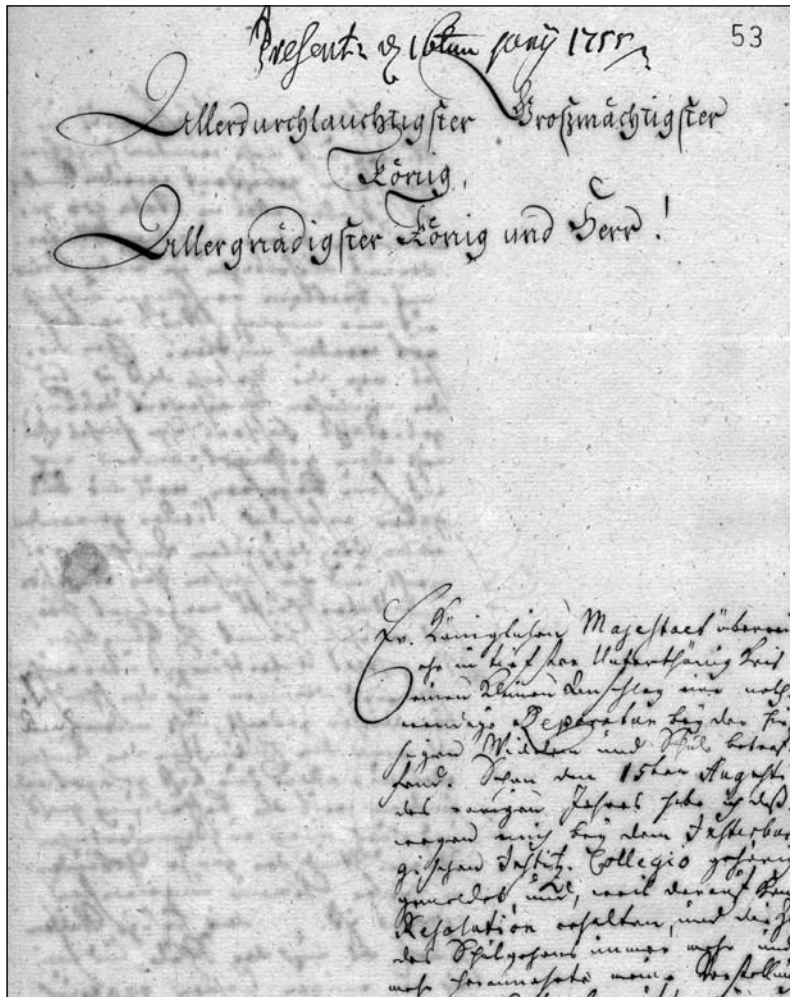 Present: d 16ten Junij 1755
53
Allerdurchlauchtigster Großmächtigster
König,
Allergnädigster König und Herr!
Ew. Königlichen Majestaet überrei
che in tiefster Unterthänigkeit
einen kleinen Anschlag eine noth
wendige Reparatur bey der hie
sigen Widdem und Schul betref
fend. Schon den 15ten Augusti
des vorigen Jahres habe ich deß
wegen mich bey dem Insterbur
gischen Justitz-Collegio gehörig
gemeldet, und, weil darauf keine
Resolution erhalten, und die Zeit
des Schulgehens immer mehr und
mehr herannahete meine Vorstellung